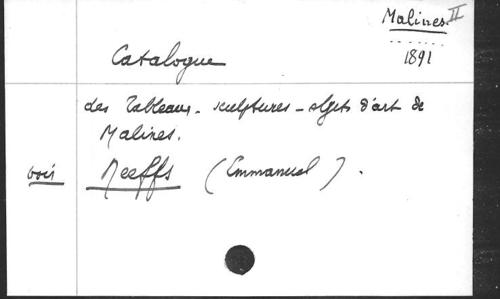 Malines. II
1891
Catalogue
des Tableaux - sculptures - objets d'art de
Malines.
voir Neeffs (Emmanuel).